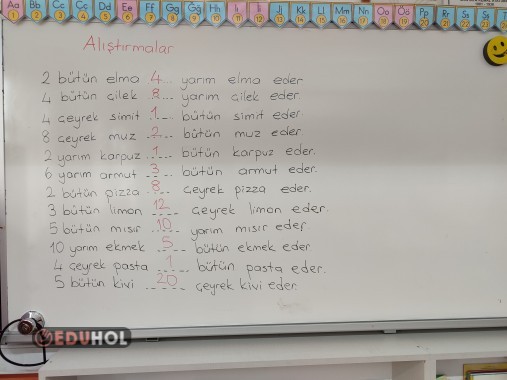 Aa Bb Cc Çç Dd Ee Ff Gg Ğğ Hh Iı İi Jj Kk Ll Mm Nn Oo Öö Pp Rr Ss Şş
Alıştırmalar
2 bütün elma 4 yarım elma eder
4 bütün çilek 8 yarım çilek eder
4 çeyrek simit 1 bütün simit eder
8 çeyrek muz 2 bütün muz eder
2 yarım karpuz 1 bütün karpuz eder.
6 yarım armut 3 bütün armut eder.
2 bütün pizza 8 çeyrek pizza eder.
3 bütün limon 12 çeyrek limon eder.
5 bütün mısır 10 yarım mısır eder
10 yarım ekmek 5 bütün ekmek eder
4 çeyrek pasta 1 bütün pasta eder.
5 bütün kivi 20 çeyrek kivi eder.
EDUHOL